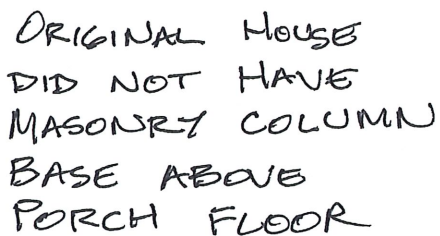 ORIGINAL HOUSE
DID NOT HAVE
MASONRY COLUMN
BASE ABOVE
PORCH FLOOR